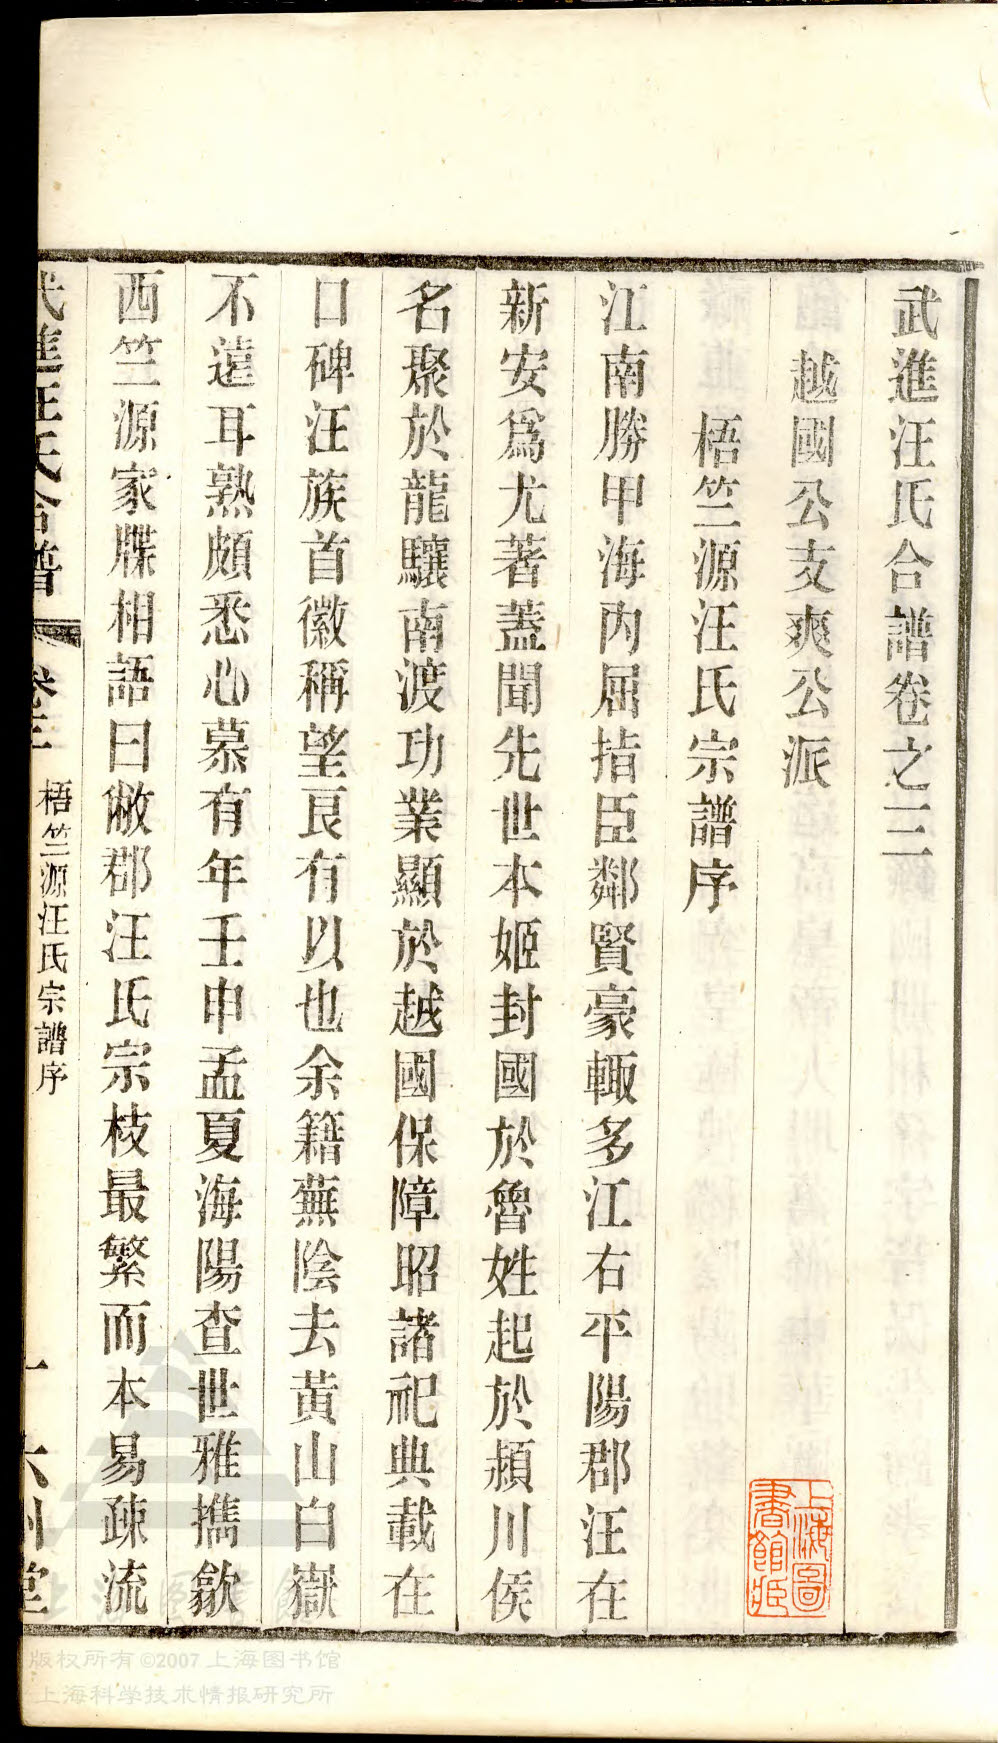 武進汪氏合譜卷之三
越國公支爽公派
梧竺源汪氏宗譜序
江南勝甲海內屈指臣鄰賢豪輙多江右平陽郡汪在
新安爲尤著蓋聞先世本姬封國於魯姓起於潁川侯
名聚於龍驤南渡功業顯於越國保障昭諸祀典載在
口碑汪族首徽稱望良有以也余籍蕪陰去黃山白嶽
不遠耳熟頗悉心慕有年壬申孟夏海陽查世雅攜歙
西竺源家牒相語曰敝郡汪氏宗枝最繁而本易疎流
武進汪氏合譜
卷三
梧竺源汪氏宗譜序
一
六州堂
上海圖書館藏
上海图书馆
版权所有©2007上海图书馆
上海科学技术情报研究所